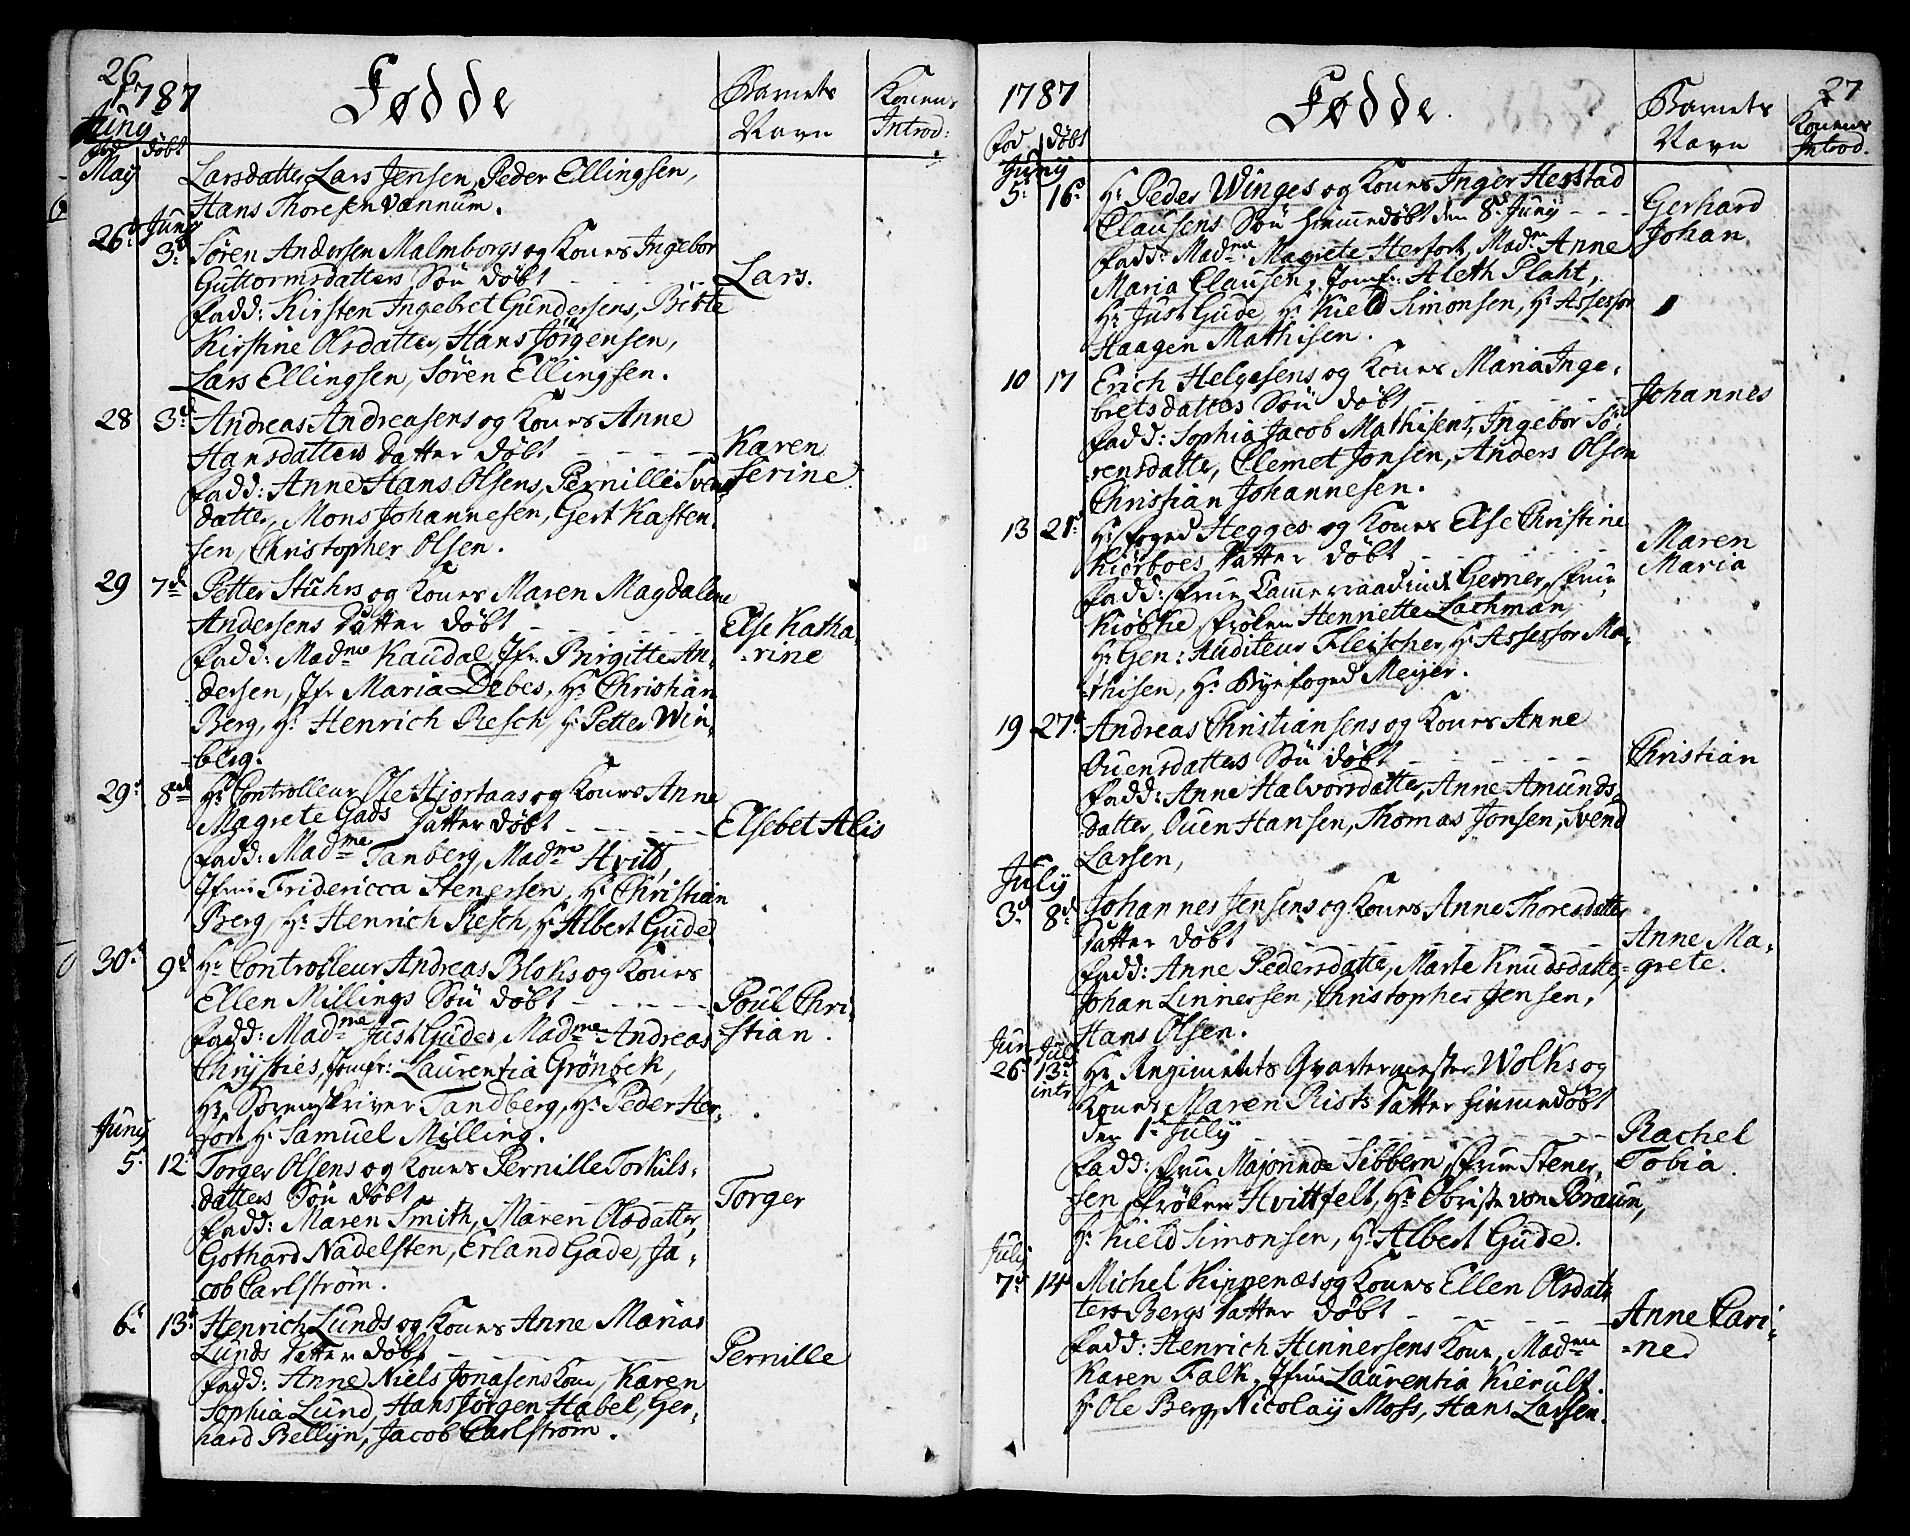 26
1787
Juny
Fødde
Barnets
Navn
Konens
Introd:
fød døbt
May
Larsdatter, Lars Jensen, Peder Ellingsen,
Hans Thoresen Vænnum.
26d Juny 3d Søren Andersen Malmborgs og Kones Ingebor
Guttormsdatters Søn døbt - - - - Lars.
fadd: Kirsten Ingebret Gundersens, Birte
Kirstine Olsdatter, Hans Jørgensen,
Lars Ellingsen, Søren Ellingsen.
28 3d Andreas Andreasens og Kones Anne
Hansdatters Datter døbt - - - - Karen
Serine
fadd: Anne Hans Olsens, Pernille Svends
datter, Mons Johannesen, Gert Kasten-
sen, Christopher Olsen.
29 7d Petter Stuhrs og Kones Maren Magdalene
Andersens Datter døbt - - - - Else Katha-
-rine
fadd: Madme Kaudal, Jfr. Birgitte An-
dersen, Jfr Maria Debes, Hr Christian
Berg, Hr. Henrich Resch, Hr Petter Win-
berg.
29d 8d Hr Controlleur Ole Hiortaas og Kones Anne
Magrete Gads Datter døbt - - - - Elsebet Alis
fadd: Madme Tanberg, Madme Hvitt,
Jfru Fridericca Stenersen, Hr Christian
Berg, Hr. Henrich Resch, Hr Albert Gude.
30d 9d Hr Controlleur Andreas Bloks og Kones
Ellen Millings Søn døbt - - - - Poul Chri-
-stian.
fadd: Madme Just Gudes, Madme Andreas
Chrysties, Jomfr: Laurentia Grønbek,
Hr Sorenskriver Tandberg, Hr Peder Her-
fort, Hr Samuel Milling.
Juny
5 12d Torger Olsens og Kones Pernille Torkils-
datters Søn døbt - - - - Torger
fadd: Maren Smith, Maren Olsdatter,
Gothard Nadelsten, Erland Gade, Ja-
cob Carlstrøm.
6d 13d Henrich Lunds og Kones Anne Marias
Lunds Datter døbt - - - - Pernille
fadd: Anne Niels Jonasens Kone, Karen
Sophia Lund, Hans Jørgen Habel, Ger-
hard Bellyn, Jacob Carlstrøm.
27
1787
Fødde.
Barnets
Navn
Konens
Introd.
fød døbt
Juny
5d 16d Hr Peder Winges og Kones Inger Hesstad
Clausens Søn hiemmedøbt den 8d Juny - - - Gerhard
Johan
fadd: Madme Magrete Herfort, Madme Anne
Maria Clausen, Jomfr: Aleth Plaht,
Hr Just Gude, Hr Kield Simonsen, Hr Assessor
Haagen Mathisen.
10 17 Erich Helgesens og Kones Maria Inge-
bretsdatters Søn døbt - - - - Johannes
fadd: Sophia Jacob Mathisens, Ingebor Sø-
rensdatter, Clemet Jonsen, Anders Olsen
Christian Johannesen.
13 21d Hr foged Hegges og Kones Else Christine
Kiørboes Datter døbt - - - - Maren
Maria
fadd: Frue Cammerraadinde Gerner, Frue
Kiøbke, frøken Henriette Lachman,
Hr Gen: Auditeur Fleischer, Hr Assessor Ma-
thisen, Hr Byefoged Meyer.
19 27d Andreas Christiansens og Kones Anne
Ouensdatters Søn døbt - - - - Christian
fadd: Anne Halvorsdatter, Anne Amunds-
datter, Ouen Hansen, Thomas Jonsen, Svend
Larsen,
July
3d 8d Johannes Jensens og Kones Anne Thoresdatter
Datter døbt - - - - Anne Ma-
-grete.
fadd: Anne Pedersdatter, Marte Knudsdatter,
Johan Linnersen, Christopher Jensen,
Hans Olsen.
Jun Jul
26d 13d intr Hr Regiments Qvartermester Wolks og
Kones Maren Rists Datter hiemmedøbt
den 1d July - - - - Rachel
Tobia.
fadd: Frue Majorinde Sibbern, Frue Stener-
sen, frøken Hvittfelt, Hr Obrist von Braun,
Hr Kield Simonsen, Hr Albert Gude.
July
7d 14d Michel Kippenæs og Kones Ellen Olsdat-
ters Bergs Datter døbt - - - - Anne Cari-
-ne.
fadd: Henrich Hinnersens Kone, Madme
Karen Falk, Jfru Laurentia Kierulf.
Hr Ole Berg, Nicolay Moss, Hans Larsen.